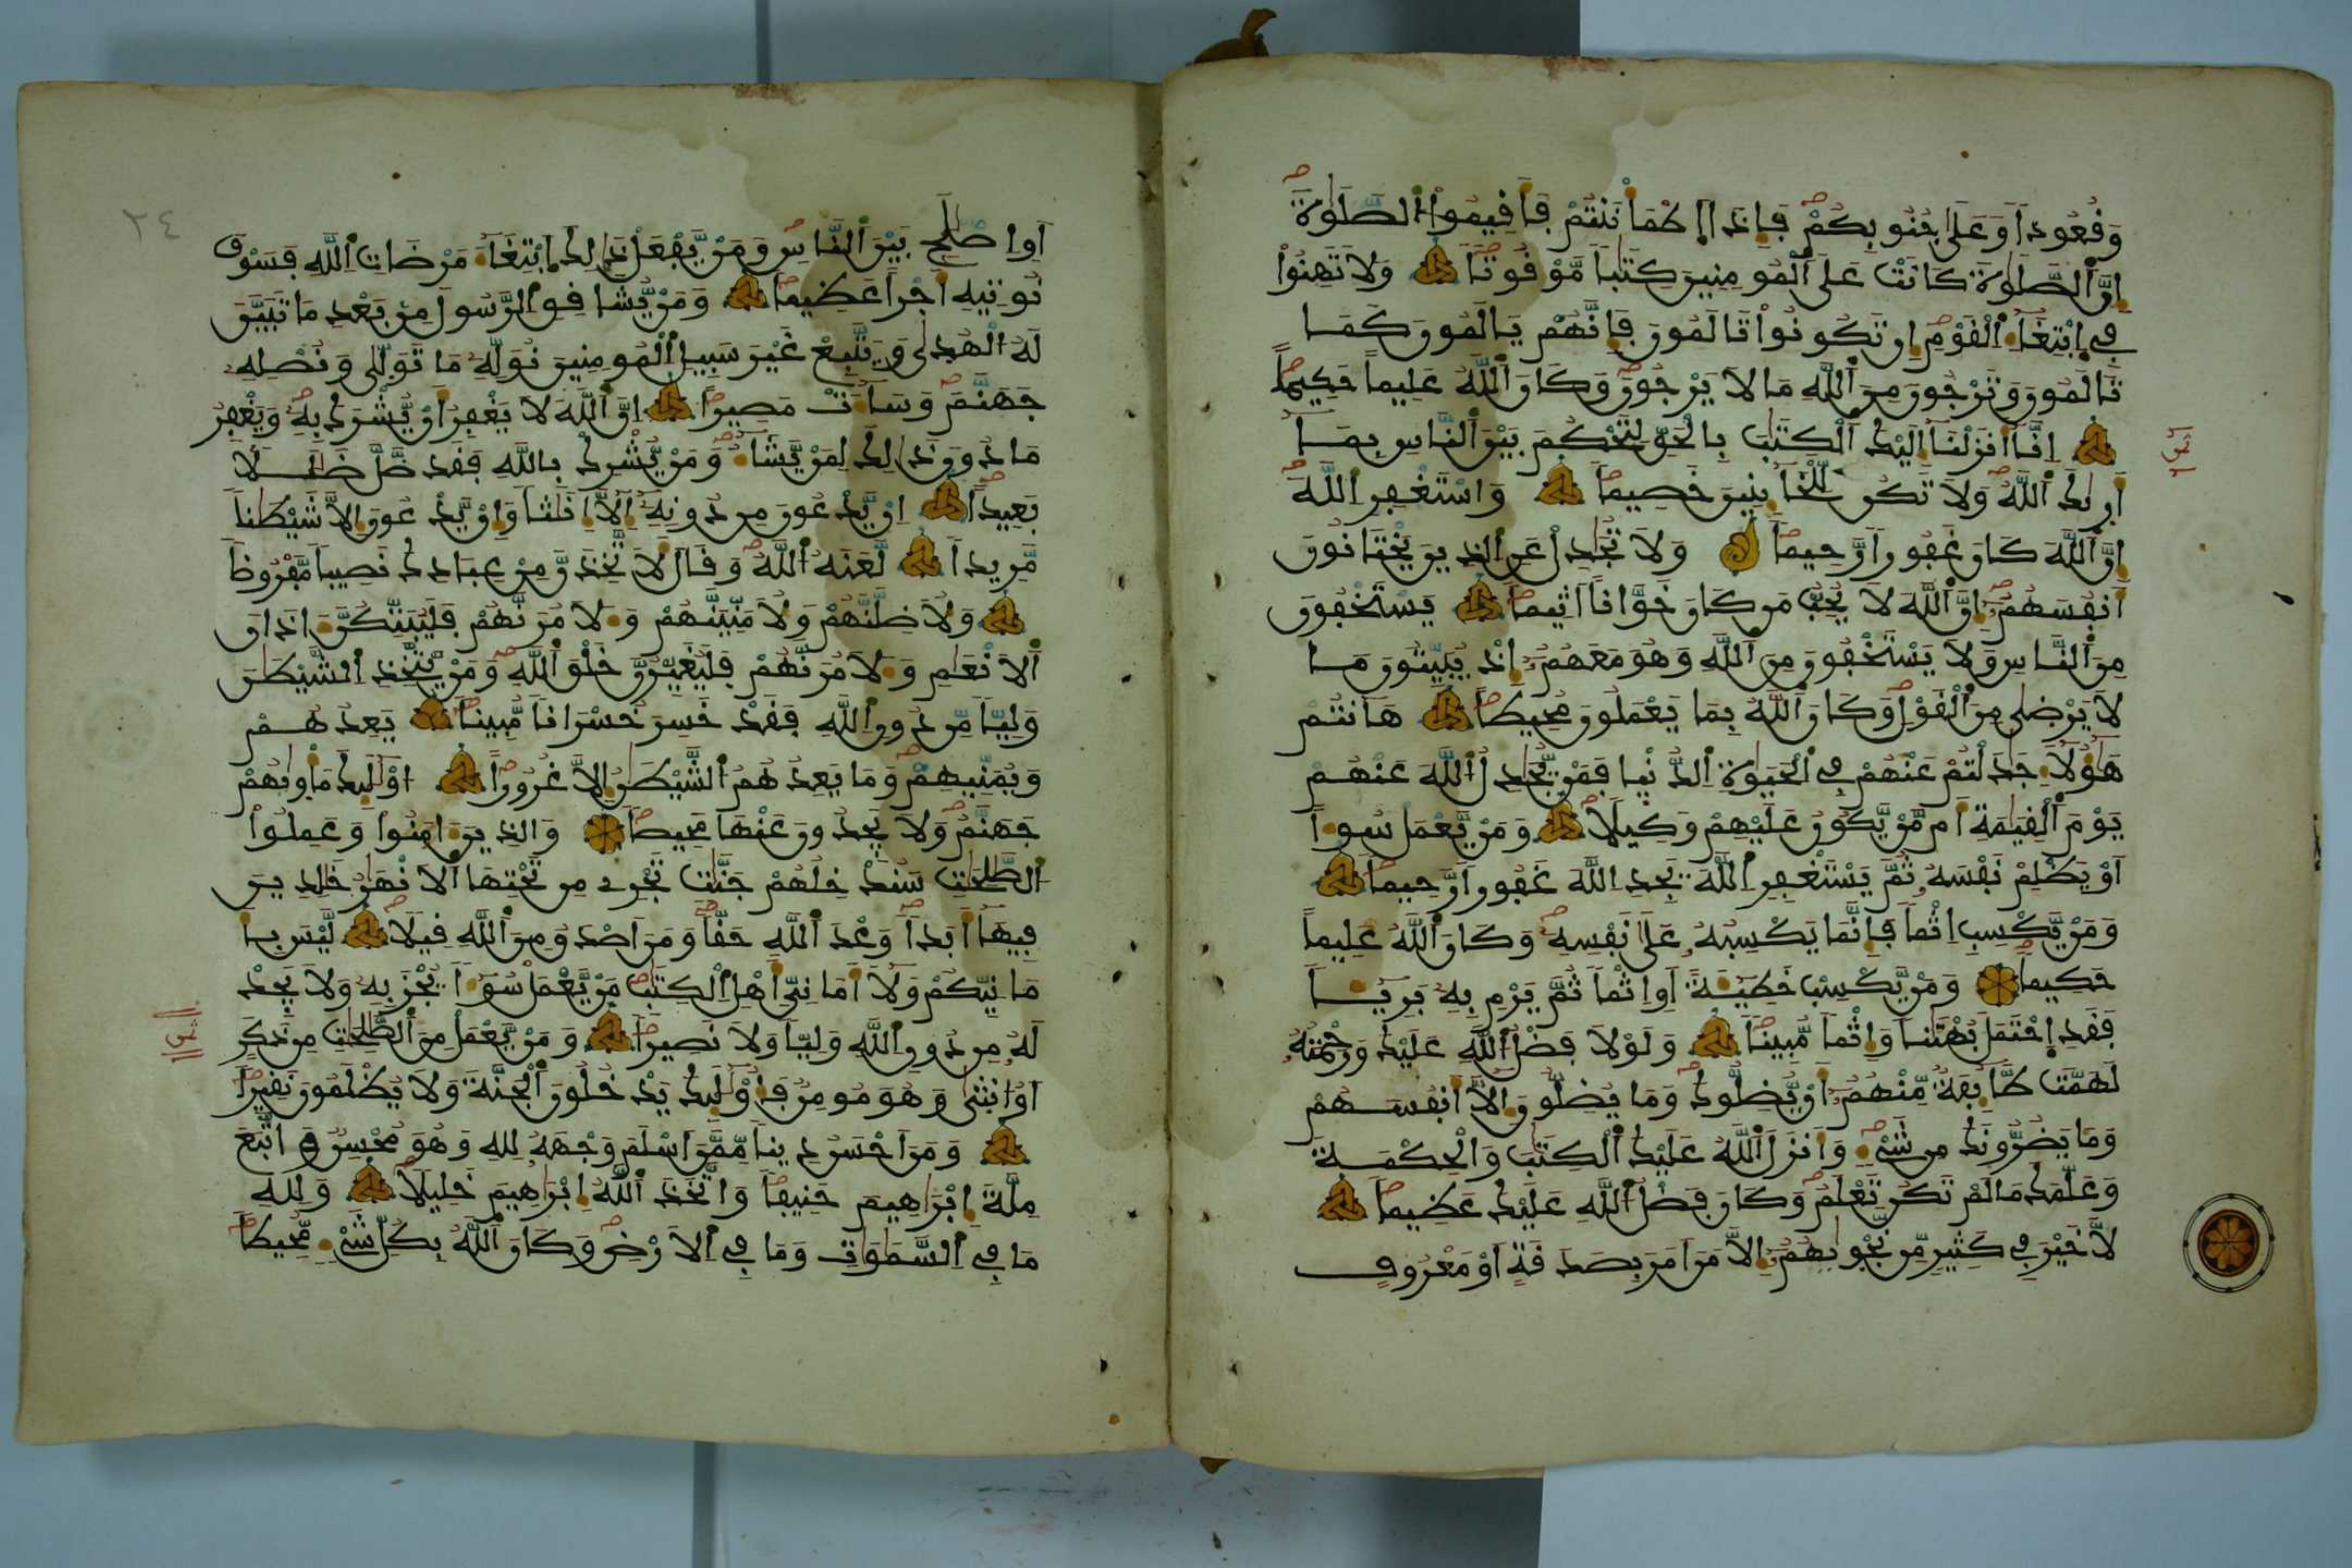 وَقُعُوداً وَعَلَىٰ جُنُوبِكُمْ فَإِذَا اَ۪طْمَأْنَنتُمْ فَأَقِيمُواْ اُ۬لصَّلَوٰةَ
إِنَّ اَ۬لصَّلَوٰةَ كَانَتْ عَلَى اَ۬لْمُومِنِينَ كِتَٰباً مَّوْقُوتاً وَلَا تَهِنُواْ
فِے اِ۪بْتِغَآءِ اِ۬لْقَوْمِ إِن تَكُونُواْ تَالَمُونَ فَإِنَّهُمْ يَالَمُونَ كَمَا
تَالَمُونَ وَتَرْجُونَ مِنَ اَ۬للَّهِ مَا لَا يَرْجُونَ وَكَانَ اَ۬للَّهُ عَلِيماً حَكِيماً
إِنَّا أَنزَلْنَا إِلَيْكَ اَ۬لْكِتَٰبَ بِالْحَقِّ لِتَحْكُمَ بَيْنَ اَ۬لنَّاسِ بِمَا
أَر۪ىٰكَ اَ۬للَّهُ وَلَا تَكُن لِّلْخَآئِنِينَ خَصِيماً وَاسْتَغْفِرِ اِ۬للَّهَ
إِنَّ اَ۬للَّهَ كَانَ غَفُوراً رَّحِيماً وَلَا تُجَٰدِلْ عَنِ اِ۬لذِينَ يَخْتَانُونَ
أَنفُسَهُمْ إِنَّ اَ۬للَّهَ لَا يُحِبُّ مَن كَانَ خَوَّاناً أَثِيماً يَسْتَخْفُونَ
مِنَ اَ۬لنَّاسِ وَلَا يَسْتَخْفُونَ مِنَ اَ۬للَّهِ وَهُوَ مَعَهُمْ إِذْ يُبَيِّتُونَ مَا
لَا يَرْضَىٰ مِنَ اَ۬لْقَوْلِ وَكَانَ اَ۬للَّهُ بِمَا يَعْمَلُونَ مُحِيطاً هَٰأَنتُمْ
هَٰؤُلَآءِ جَٰدَلْتُمْ عَنْهُمْ فِے اِ۬لْحَيَوٰةِ اِ۬لدُّنْيا فَمَنْ يُّجَٰدِلُ اُ۬للَّهَ عَنْهُمْ
يَوْمَ اَ۬لْقِيَٰمَةِ أَم مَّنْ يَّكُونُ عَلَيْهِمْ وَكِيلاً وَمَنْ يَّعْمَلْ سُوءاً
أَوْ يَظْلِمْ نَفْسَهُۥ ثُمَّ يَسْتَغْفِرِ اِ۬للَّهَ يَجِدِ اِ۬للَّهَ غَفُوراً رَّحِيماً
وَمَنْ يَّكْسِبِ اِثْماً فَإِنَّمَا يَكْسِبُهُۥ عَلَىٰ نَفْسِهِۦ وَكَانَ اَ۬للَّهُ عَلِيماً
حَكِيماً وَمَنْ يَّكْسِبْ خَطِيئَةً أَوِ اِثْماً ثُمَّ يَرْمِ بِهِۦ بَرِيئاً
فَقَدِ اِ۪حْتَمَلَ بُهْتَٰناً وَإِثْماً مُّبِيناً وَلَوْلَا فَضْلُ اُ۬للَّهِ عَلَيْكَ وَرَحْمَتُهُۥ
لَهَمَّت طَّآئِفَةٌ مِّنْهُمُۥ أَنْ يُّضِلُّوكَ وَمَا يُضِلُّونَ إِلَّا أَنفُسَهُمْ
وَمَا يَضُرُّونَكَ مِن شَےْءٍ وَأَنزَلَ اَ۬للَّهُ عَلَيْكَ اَ۬لْكِتَٰبَ وَالْحِكْمَةَ
وَعَلَّمَكَ مَا لَمْ تَكُن تَعْلَمُ وَكَانَ فَضْلُ اُ۬للَّهِ عَلَيْكَ عَظِيماً
لَّا خَيْرَ فِے كَثِيرٍ مِّن نَّجْو۪ىٰهُمُۥ إِلَّا مَنَ اَمَرَ بِصَدَقَةٍ أَوْ مَعْرُوفٍ
٣٤
أَوِ اِصْلَٰحِۢ بَيْنَ اَ۬لنَّاسِ وَمَنْ يَّفْعَلْ ذَٰلِكَ اَ۪بْتِغَآءَ مَرْضَاتِ اِ۬للَّهِ فَسَوْفَ
نُوتِيهِ أَجْراً عَظِيماً وَمَنْ يُّشَاقِقِ اِ۬لرَّسُولَ مِنۢ بَعْدِ مَا تَبَيَّنَ
لَهُ اُ۬لْهُد۪ىٰ وَيَتَّبِعْ غَيْرَ سَبِيلِ اِ۬لْمُومِنِينَ نُوَلِّهِۦ مَا تَوَلَّىٰ وَنُصْلِهِۦ
جَهَنَّمَ وَسَآءَتْ مَصِيراً إِنَّ اَ۬للَّهَ لَا يَغْفِرُ أَنْ يُّشْرَكَ بِهِۦ وَيَغْفِرُ
مَا دُونَ ذَٰلِكَ لِمَنْ يَّشَآءُ وَمَنْ يُّشْرِكْ بِاللَّهِ فَقَد ضَّلَّ ضَلَٰلاً
بَعِيداً إِنْ يَّدْعُونَ مِن دُونِهِۦ إِلَّا إِنَٰثاً وَإِنْ يَّدْعُونَ إِلَّا شَيْطَٰناً
مَّرِيداً لَّعَنَهُ اُ۬للَّهُ وَقَالَ لَأَتَّخِذَنَّ مِنْ عِبَادِكَ نَصِيباً مَّفْرُوضاً
وَلَأُضِلَّنَّهُمْ وَلَأُمَنِّيَنَّهُمْ وَءَلَامُرَنَّهُمْ فَلَيُبَتِّكُنَّ ءَاذَانَ
اَ۬لَانْعَٰمِ وَءَلَامُرَنَّهُمْ فَلَيُغَيِّرُنَّ خَلْقَ اَ۬للَّهِ وَمَنْ يَّتَّخِذِ اِ۬لشَّيْطَٰنَ
وَلِيّاً مِّن دُونِ اِ۬للَّهِ فَقَدْ خَسِرَ خُسْرَاناً مُّبِيناً يَعِدُهُمْ
وَيُمَنِّيهِمْ وَمَا يَعِدُهُمُ اُ۬لشَّيْطَٰنُ إِلَّا غُرُوراً أُوْلَٰئِكَ مَأْو۪ىٰهُمْ
جَهَنَّمُ وَلَا يَجِدُونَ عَنْهَا مَحِيصاً وَالذِينَ ءَامَنُواْ وَعَمِلُواْ
اُ۬لصَّٰلِحَٰتِ سَنُدْخِلُهُمْ جَنَّٰتٍ تَجْرِے مِن تَحْتِهَا اَ۬لَانْهَٰرُ خَٰلِدِينَ
فِيهَا أَبَداً وَعْدَ اَ۬للَّهِ حَقّاً وَمَنَ اَصْدَقُ مِنَ اَ۬للَّهِ قِيلاً لَّيْسَ بِأَ
مَانِيِّكُمْ وَلَا أَمَانِيِّ أَهْلِ اِ۬لْكِتَٰبِ مَنْ يَّعْمَلْ سُوءاً يُجْزَ بِهِۦ وَلَا يَجِدْ
لَهُۥ مِن دُونِ اِ۬للَّهِ وَلِيّاً وَلَا نَصِيراً وَمَنْ يَّعْمَلْ مِنَ اَ۬لصَّٰلِحَٰتِ مِن ذَكَرٍ
أَوُ اُنث۪ىٰ وَهُوَ مُومِنٌ فَأُوْلَٰئِكَ يَدْخُلُونَ اَ۬لْجَنَّةَ وَلَا يُظْلَمُونَ نَقِيراً
وَمَنَ اَحْسَنُ دِيناً مِّمَّنَ اَسْلَمَ وَجْهَهُۥ لِلهِ وَهُوَ مُحْسِنٌ وَاتَّبَعَ
مِلَّةَ إِبْرَٰهِيمَ حَنِيفاً وَاتَّخَذَ اَ۬للَّهُ إِبْرَٰهِيمَ خَلِيلاً وَلِلهِ
مَا فِے اِ۬لسَّمَٰوَٰتِ وَمَا فِے اِ۬لَارْضِ وَكَانَ اَ۬للَّهُ بِكُلِّ شَےْءٍ مُّحِيطاً